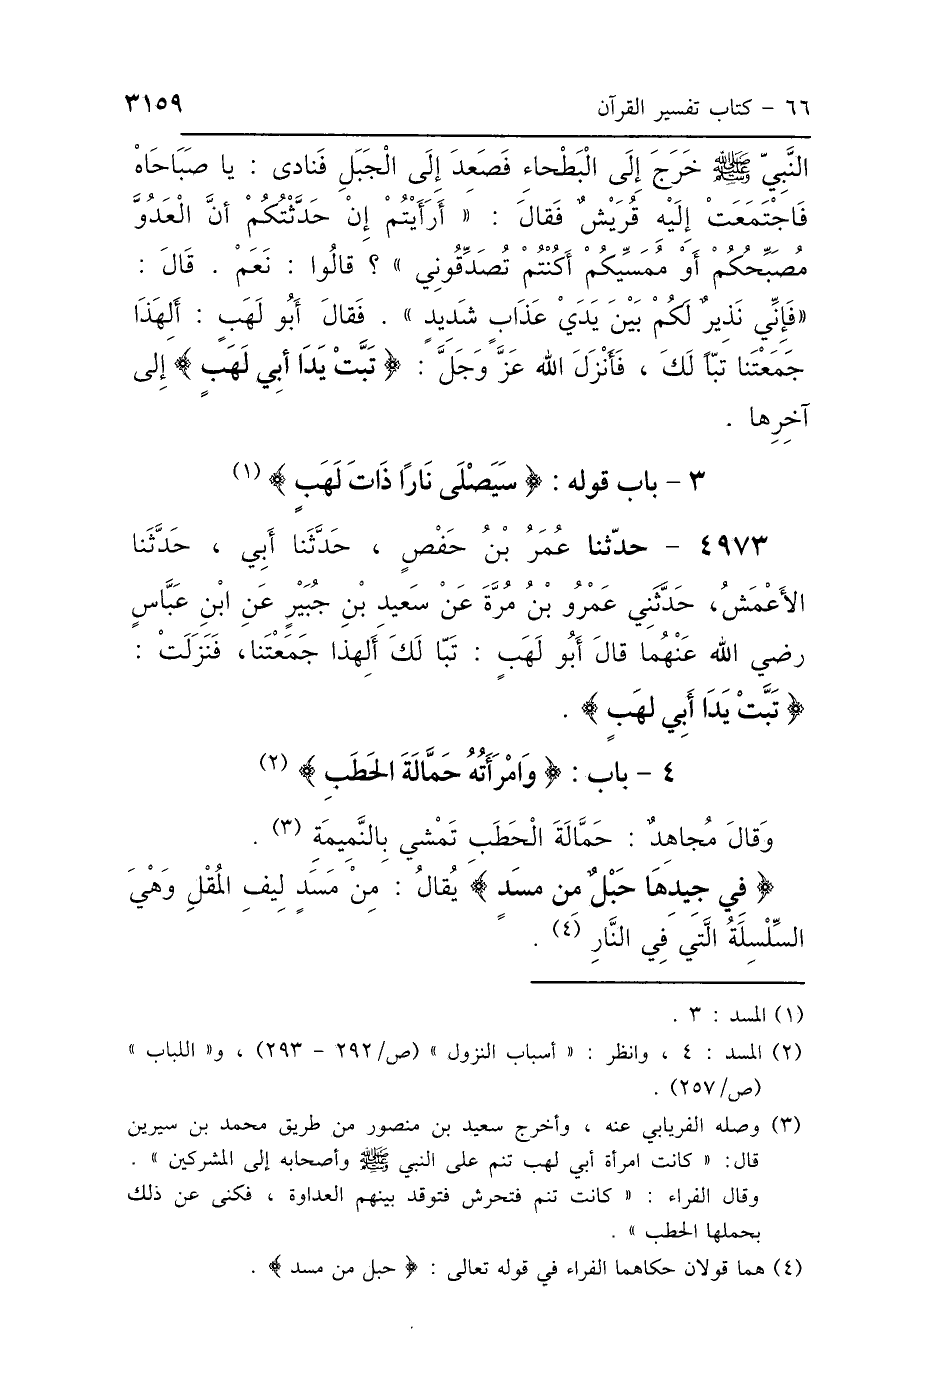 ٦٦ - كتاب تفسير القرآن ٣١٥٩
النَّبِيّ ﷺ خَرَجَ إِلَى الْبَطْحاءِ فَصَعِدَ إِلَى الْجَبَلِ فَنادى : يا صَبَاحَاهْ
فَاجْتَمَعَتْ إِلَيْهِ قُرَيْشٌ فَقالَ : « أَرَأَيْتُمْ إِنْ حَدَّثْتُكُمْ أنَّ الْعَدُوَّ
مُصَبِّحُكُمْ أَوْ مُمَسِّيكُمْ أَكُنْتُمْ تُصَدِّقُوني » ؟ قالُوا : نَعَمْ . قَالَ :
«فَإِنِّي نَذِيرٌ لَكُمْ بَيْنَ يَدَيْ عَذَابٍ شَديدٍ » . فَقالَ أَبُو لَهَبٍ : أَلِهَذَا
جَمَعْتَنا تبّاً لَكَ ، فَأَنْزَلَ الله عَزَّ وَجَلَّ : ﴿ تَبَّتْ يَدَا أبي لَهَبٍ ﴾ إلى
آخِرِها .
٣ - باب قوله : ﴿ سَيَصْلَى نَارًا ذَاتَ لَهَبٍ ﴾ (١)
٤٩٧٣ - حدّثنا عُمَرُ بْنُ حَفْصٍ ، حَدَّثَنا أَبي ، حَدَّثَنا
الأَعْمَشُ، حَدَّثَنِي عَمْرُو بْنُ مُرَّةَ عَنْ سَعيدِ بْنِ جُبَيْرٍ عَنِ ابْنِ عَبَّاسٍ
رضي الله عَنْهُما قالَ أَبُو لَهَبٍ : تَبّا لَكَ أَلِهذا جَمَعْتَنا، فَنَزَلَتْ :
﴿ تَبَّتْ يَدَا أَبِي لهَبٍ ﴾ .
٤ - باب : ﴿ وَامْرَأَتُهُ حَمَّالَةَ الحَطَبِ ﴾ (٢)
وَقالَ مُجاهدٌ : حَمَّالَةَ الْحَطَبِ تَمْشي بِالنَّميمَةِ (٣) .
﴿ في جيدِهَا حَبْلٌ من مسَدٍ ﴾ يُقالُ : مِنْ مَسَدٍ لِيفِ المُقْلِ وَهْيَ
السِّلْسِلَةُ الَّتي فِي النَّارِ (٤) .
(١) المسد : ٣ .
(٢) المسد : ٤ ، وانظر : « أسباب النزول » (ص/٢٩٢ - ٢٩٣) ، و« اللباب »
(ص/٢٥٧) .
(٣) وصله الفريابي عنه ، وأخرج سعيد بن منصور من طريق محمد بن سيرين
قال: « كانت امرأة أبي لهب تنم على النبي ﷺ وأصحابه إلى المشركين » .
وقال الفراء : « كانت تنم فتحرش فتوقد بينهم العداوة ، فكنى عن ذلك
بحملها الحطب » .
(٤) هما قولان حكاهما الفراء في قوله تعالى : ﴿ حبل من مسد ﴾ .